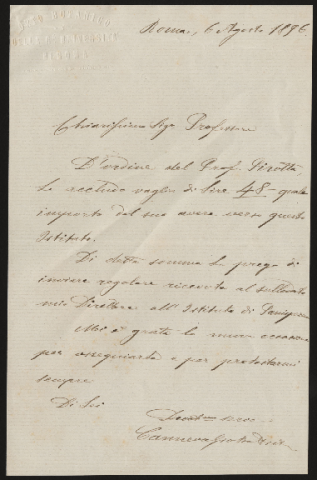 Roma, 6 Agosto 1896
Chiarissimo Sigr Professore
D'ordine del Prof. Pirotta,
Le vaglia di lire 48 – quale
importo del suo avere verso questo
Istituto.
Di detta somma La prego di
inviare regolare ricevuta al sullodato
mio Direttore all'Istituto di Panisperna
Mi è grata la nuova occasione
per ossequiarla e per protestarmi
sempre
Di Lei